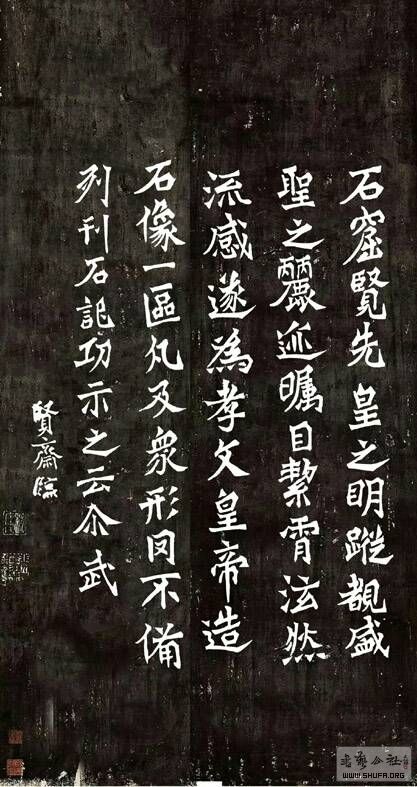 石窟覽先皇之明蹤覩盛
聖之麗迹矚目徹霄泫然
流感遂為孝文皇帝造
石像一區凡及衆形罔不備
列刊石記功示之云尒武
賢齋臨
書藝公社
WWW.SHUFA.ORG